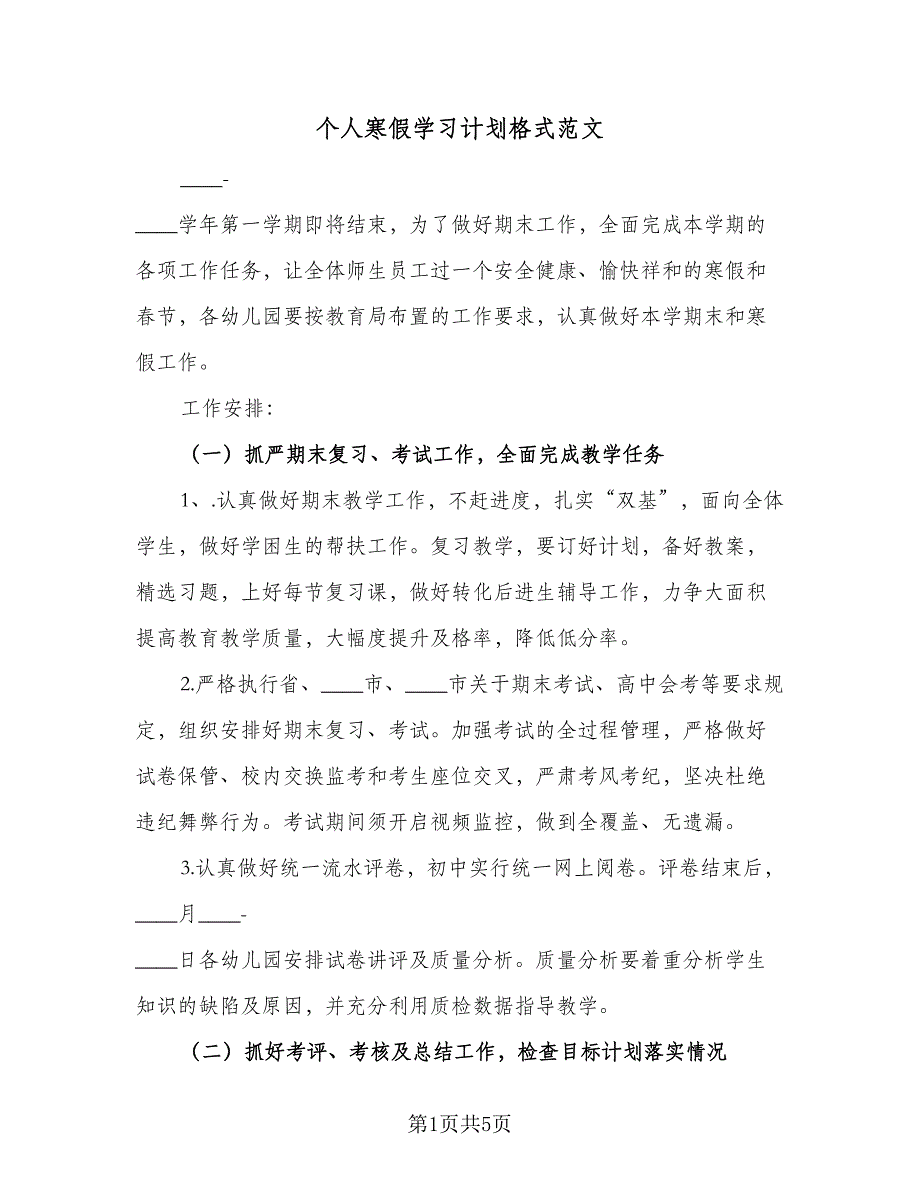 个人寒假学习计划格式范文
____-
____学年第一学期即将结束，为了做好期末工作，全面完成本学期的
各项工作任务，让全体师生员工过一个安全健康、愉快祥和的寒假和
春节，各幼儿园要按教育局布置的工作要求，认真做好本学期末和寒
假工作。
工作安排：
（一）抓严期末复习、考试工作，全面完成教学任务
1、.认真做好期末教学工作，不赶进度，扎实“双基”，面向全体
学生，做好学困生的帮扶工作。复习教学，要订好计划，备好教案，
精选习题，上好每节复习课，做好转化后进生辅导工作，力争大面积
提高教育教学质量，大幅度提升及格率，降低低分率。
2.严格执行省、____市、____市关于期末考试、高中会考等要求规
定，组织安排好期末复习、考试。加强考试的全过程管理，严格做好
试卷保管、校内交换监考和考生座位交叉，严肃考风考纪，坚决杜绝
违纪舞弊行为。考试期间须开启视频监控，做到全覆盖、无遗漏。
3.认真做好统一流水评卷，初中实行统一网上阅卷。评卷结束后，
____月____-
____日各幼儿园安排试卷讲评及质量分析。质量分析要着重分析学生
知识的缺陷及原因，并充分利用质检数据指导教学。
（二）抓好考评、考核及总结工作，检查目标计划落实情况
第1页共5页